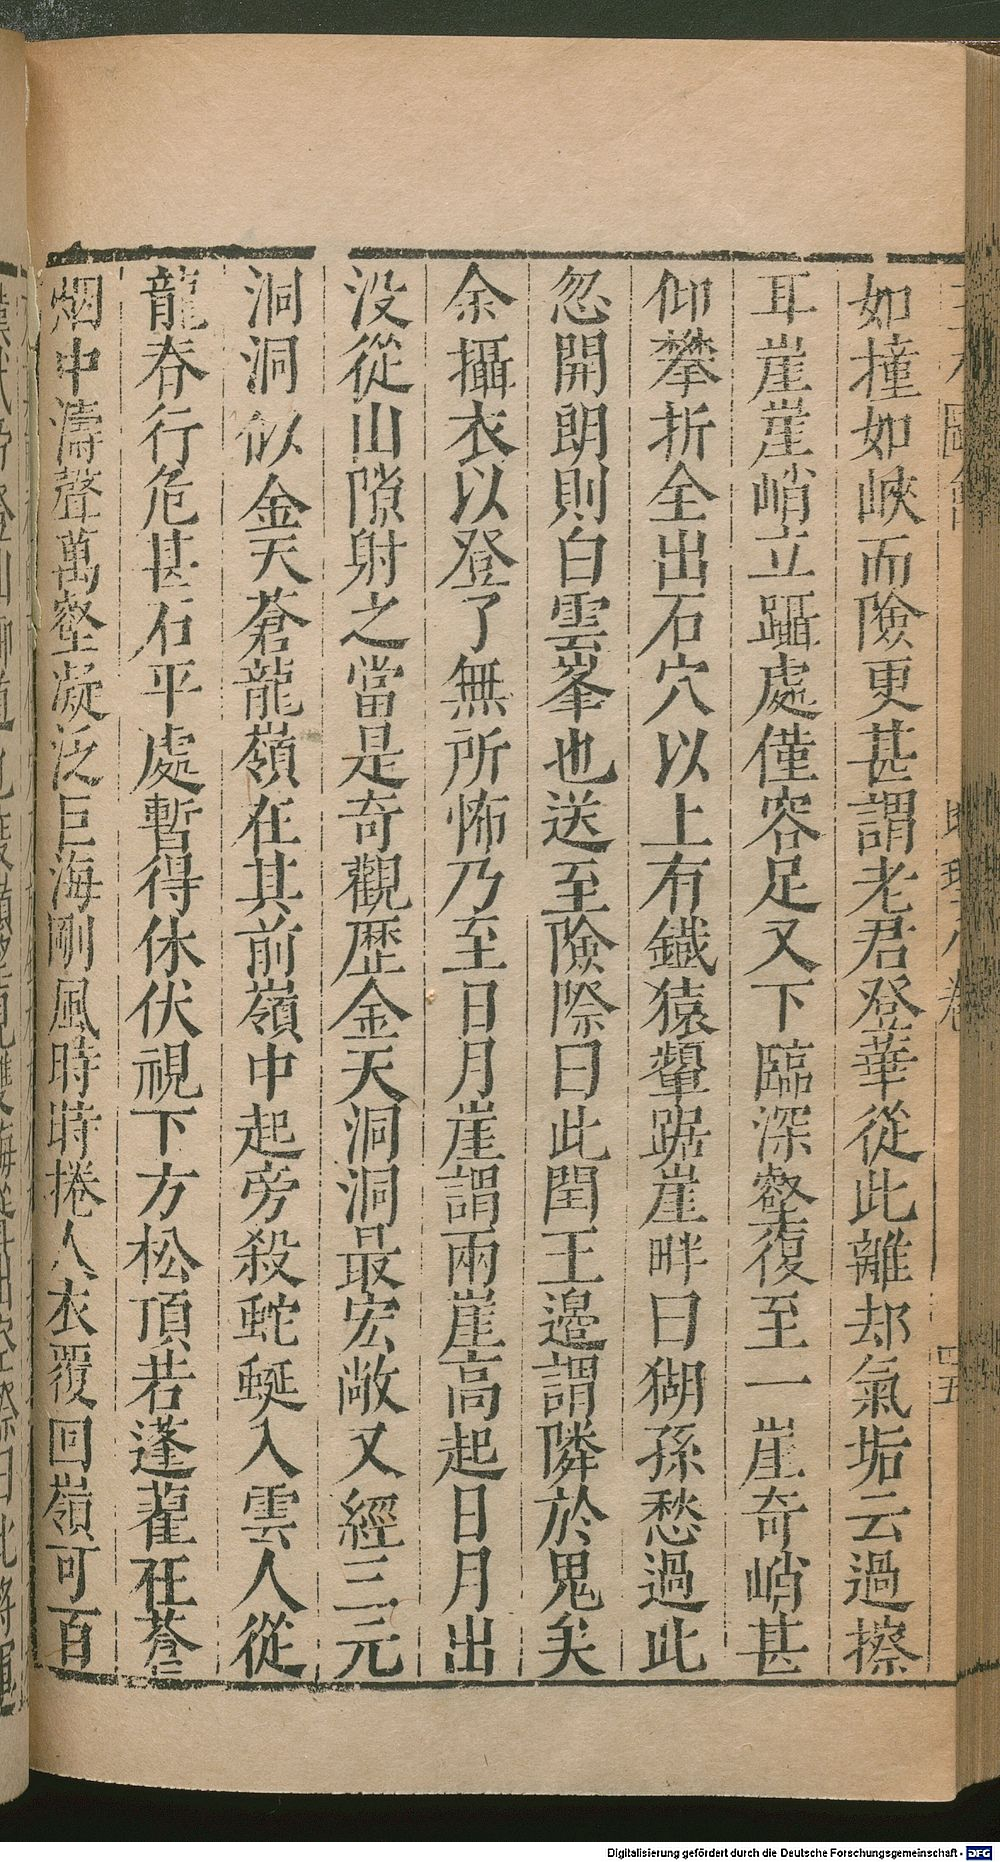 如撞如峽而險更甚謂老君登華從此離却氣垢云過擦
耳崖崖峭立躡處僅容足又下臨深壑復至一崖奇峭甚
仰攀折全出石穴以上有鐵猿犨踞崖畔曰猢孫愁過此
忽開朗則白雲峯也送至險際曰此閏王邉謂隣於鬼矣
余攝衣以登了無所怖乃至日月崖謂兩崖高起日月出
没從山隙射之當是奇觀歷金天洞洞最宏敞又經三元
洞洞似金天蒼龍嶺在其前嶺中起旁殺蛇蜒入雲人從
龍脊行危甚石平處暫得休伏視下方松頂若蓬藋在蒼
烟中濤聲萬壑凝泛巨海剛風時時捲人衣覆回嶺可百
四五
Digitalisierung gefördert durch die Deutsche Forschungsgemeinschaft - DFG